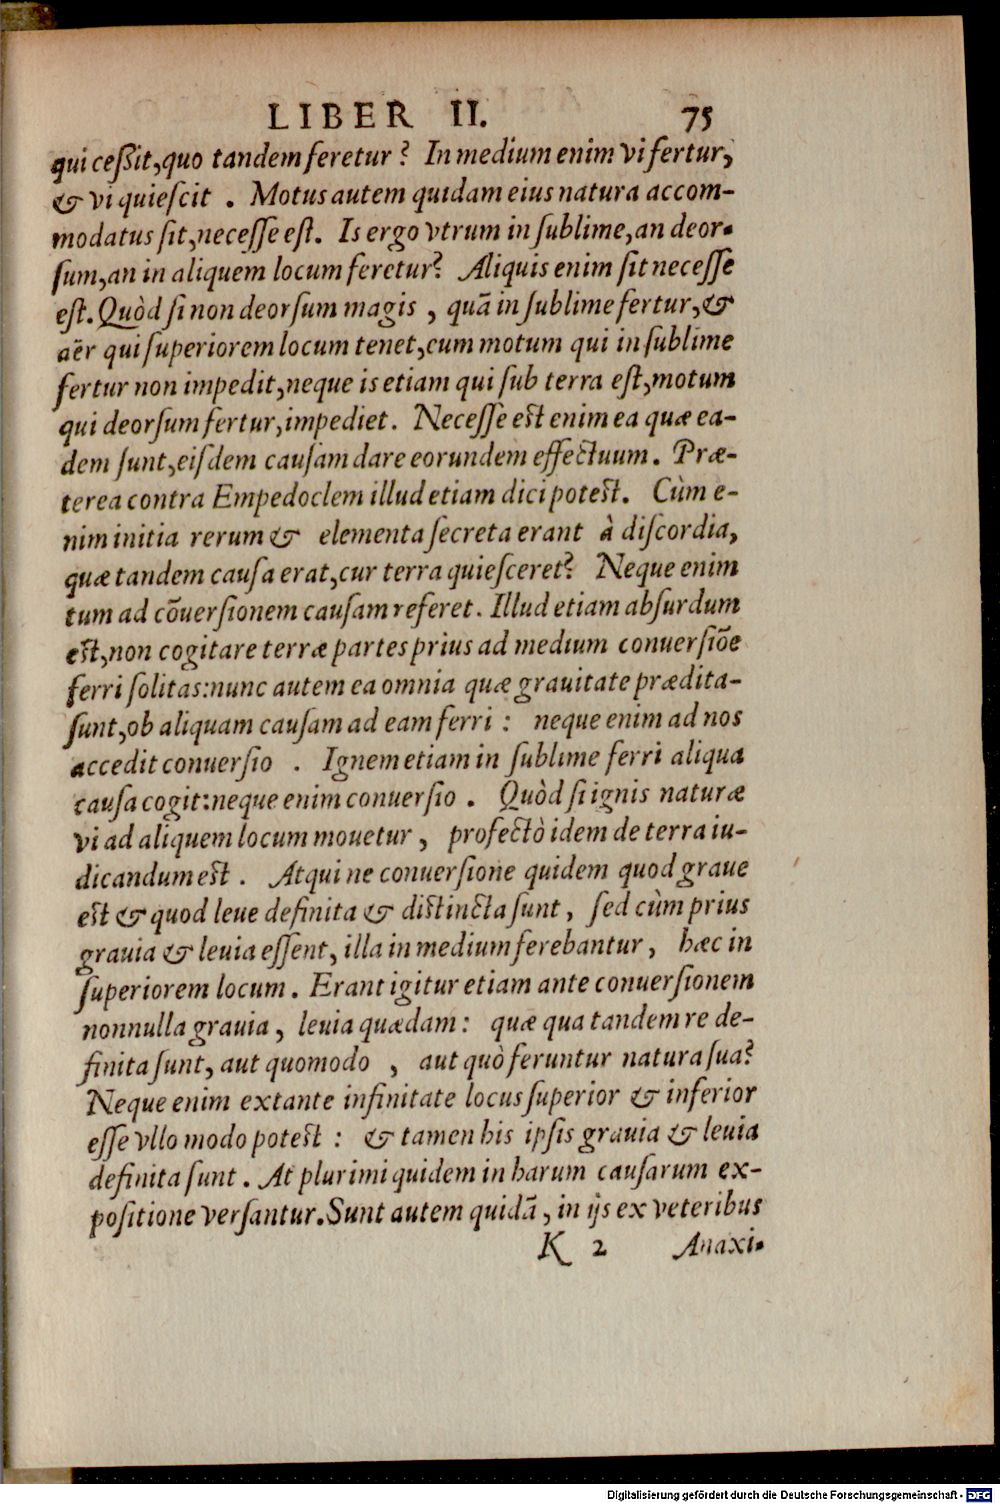 LIBER II. 75
qui ceßit, quo tandem feretur? In medium enim vi fertur,
& vi quieſcit. Motus autem quidam eius natura accom-
modatus ſit, neceſſe eſt. Is ergo vtrum in ſublime, an deor-
ſum, an in aliquem locum feretur? Aliquis enim ſit neceſſe
eſt. Quòd ſi non deorſum magis, quā in ſublime fertur, &
aër qui ſuperiorem locum tenet, cum motum qui in ſublime
fertur non impedit, neque is etiam qui ſub terra eſt, motum
qui deorſum fertur, impediet. Neceſſe eſt enim ea quæ ea-
dem ſunt, eiſdem cauſam dare eorundem effectuum. Præ-
terea contra Empedoclem illud etiam dici poteſt. Cùm e-
nim initia rerum & elementa ſecreta erant à diſcordia,
quæ tandem cauſa erat, cur terra quieſceret? Neque enim
tum ad cōuerſionem cauſam referet. Illud etiam abſurdum
eſt, non cogitare terræ partes prius ad medium conuerſiōe
ferri ſolitas: nunc autem ea omnia quæ grauitate prædita-
ſunt, ob aliquam cauſam ad eam ferri: neque enim ad nos
accedit conuerſio. Ignem etiam in ſublime ferri aliqua
cauſa cogit: neque enim conuerſio. Quòd ſi ignis naturæ
vi ad aliquem locum mouetur, profectò idem de terra iu-
dicandum eſt. Atqui ne conuerſione quidem quod graue
eſt & quod leue definita & diſtincta ſunt, ſed cùm prius
grauia & leuia eſſent, illa in medium ferebantur, hæc in
ſuperiorem locum. Erant igitur etiam ante conuerſionem
nonnulla grauia, leuia quædam: quæ qua tandem re de-
finita ſunt, aut quomodo, aut quò feruntur natura ſua?
Neque enim extante infinitate locus ſuperior & inferior
eſſe vllo modo poteſt: & tamen his ipſis grauia & leuia
definita ſunt. At plurimi quidem in harum cauſarum ex-
poſitione verſantur. Sunt autem quidā, in ijs ex veteribus
K 2 Anaxi-
Digitalisierung gefördert durch die Deutsche Forschungsgemeinschaft - DFG